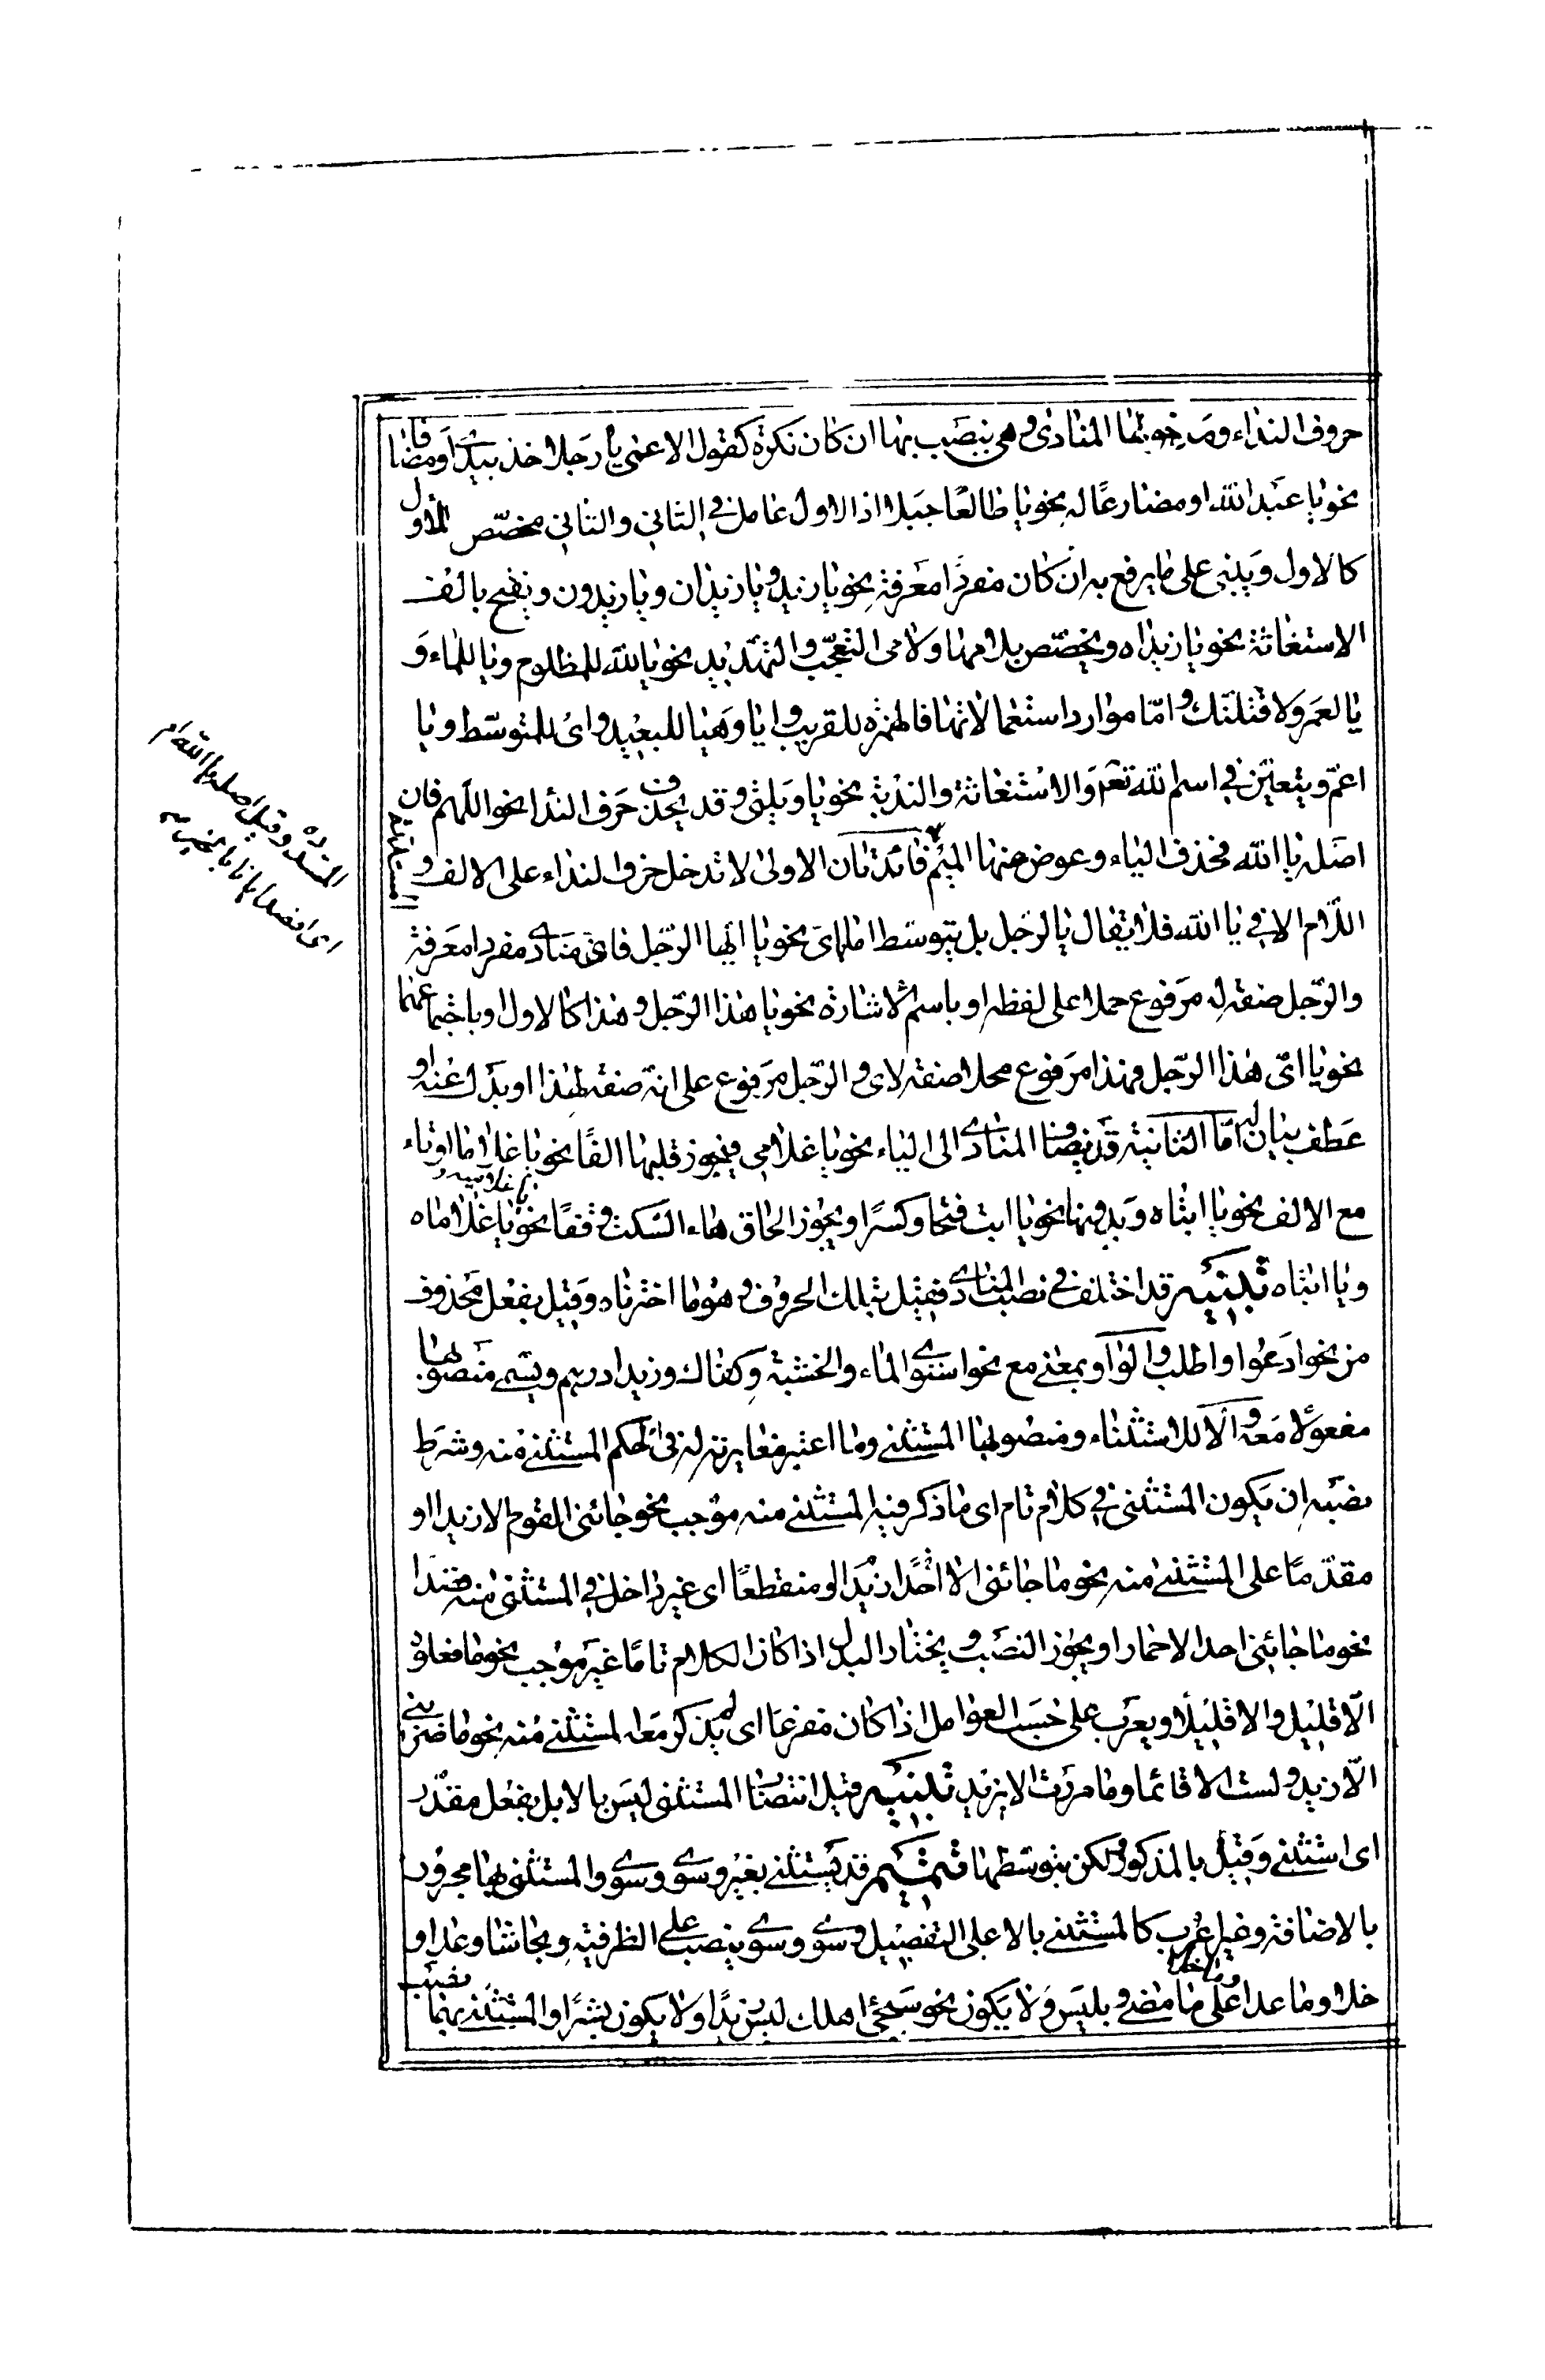 حروف النداء ومدخولها المنادى وهى ينصب بها ان كان نكرة كقول الاعمى يا رجلا خذ بيدى او مضافا
نحو يا عبد الله او مضارعا له نحو يا طالعا جبلا اذ الاول عامل فى الثانى والثانى مخصص للاول
كالاول ويبنى على ما يرفع به ان كان مفردا معرفة نحو يا زيد ويا زيدان ويا زيدون ويفتح بالف
الاستغاثة نحو يا زيداه ويخفض بلامها ولامى التعجب والتهديد نحو يا لله للمظلوم ويا للماء و
يا لعمرو لاقتلنك واما موارد استعمالاتها فالهمزة للقريب وايا وهيا للبعيد واى للمتوسط ويا
اعم ويتعين فى اسم الله تعم والاستغاثة والندبة نحو يا ويلتى وقد يحذف حرف الندا نحو اللهم فان
اصله يا الله فحذف الياء وعوض عنها الميم فائدتان الاولى لا تدخل حرف النداء على الالف و
اللام الا فى يا الله فلا يقال يا الرجل بل يتوسط اما اى نحو يا ايها الرجل فاى منادى مفرد معرفة
والرجل صفة له مرفوع حملا على لفظه او باسم الاشارة نحو يا هذا الرجل وهذا كالاول او باجتماعهما
نحو يا اى هذا الرجل فهذا مرفوع محلا صفة لاى والرجل مرفوع على انه صفة لهذا او بدل عنه او
عطف بيان له اما الثانية قد يضاف المنادى الى الياء نحو يا غلامى فيجوز قلبها الفا نحو يا غلاما او تاء
مع الالف نحو يا ابتاه وبدونها نحو يا ابت فتحا وكسرا ويجوز الحاق هاء السكت وقفا نحو يا غلاماه
يا غلاميه و
ويا ابتاه تنبيه قد اختلف فى نصب المنادى فقيل بتلك الحروف وهو ما اخترناه وقيل بفعل محذوف
من نحو ادعوا واطلب والواو بمعنى مع نحو استوى الماء والخشبة وكفاك وزيدا درهم ويسمى منصوبها
مفعولا معه والا للاستثناء ومنصوبها المستثنى وما اعتبر مغايرته له فى الحكم المستثنى منه وشرط
نصبه ان يكون المستثنى فى كلام تام اى ما ذكر فيه المستثنى منه موجب نحو جائنى القوم الا زيدا او
مقدما على المستثنى منه نحو ما جائنى الا زيدا او منقطعا اى غير داخل فى المستثنى منه
نحو ما جائنى احد الا حمارا ويجوز النصب ويختار البدل اذا كان الكلام تاما غير موجب نحو ما فعلوه
الا قليل والا قليلا ويعرب على حسب العوامل اذا كان مفرغا اى لم يذكر معه المستثنى منه نحو ما ضربنى
الا زيد ولست الا قائما وما مررت الا بزيد تنبيه قيل انتصاب المستثنى ليس بالا بل بفعل مقدر
اى استثنى وقيل بالمذكور لكن بتوسطها تتميم قد يستثنى بغير وسوى وسوى والمستثنى بها مجرور
بالاضافة وغير اعرب كالمستثنى بالا على التفصيل وسوى وسوى ينصب على الظرفية وبحاشا وعدا و
خلا وما عدا على ما مضى وبليس ولا يكون نحو سيجئ اهلك ليس زيدا ولا يكون بشرا والمستثنى بهما
وما خلا
نصب
المشددة وقيل اصله يا الله ام